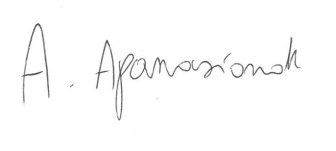 A. Apanasionok